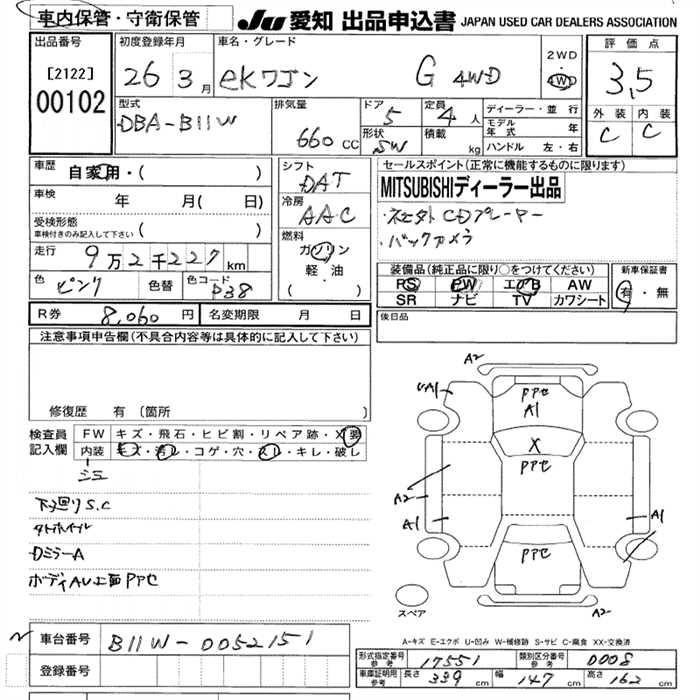 車内保管・守衛保管
JU 愛知 出品申込書 JAPAN USED CAR DEALERS ASSOCIATION
出品番号
[2122]
00102
初度登録年月
26 3月
車名・グレード
ekワゴン G 4WD
2WD
4WD
評価点
3.5
外装 内装
C C
型式
DBA-B11W
排気量
660 CC
ドア
5
形状
SW
定員
4人
積載
kg
ディーラー・並行
モデル年式 年
ハンドル 左・右
車歴
自家用・( )
車検
年 月( 日)
受検形態
車検付きのみ記入して下さい ( )
走行
9万2千227km
色
ピンク
色替
色コード
P38
シフト
DAT
冷房
AAC
燃料
ガソリン
軽油
( )
セールスポイント(正常に機能するものに限ります)
MITSUBISHIディーラー出品
・社外CDプレーヤー
・バックカメラ
装備品(純正品に限り○をつけてください)
PS PW エアB AW
SR ナビ TV カワシート
新車保証書
有・無
後日品
R券 8,060円 名変期限 月 日
注意事項申告欄(不具合内容等は具体的に記入して下さい)
修復歴 有(箇所 )
検査員記入欄
FW キズ・飛石・ヒビ割・リペア跡・X 要
内装 キズ・汚レ・コゲ・穴・スレ・キレ・破レ
シミ
下廻りS.C
タトホイール
DミラーA
ボディAU上面PPセ
A2
UA1
PPセ
A1
X
PPセ
A2
A1
A1
PPセ
A2
スペア
A-キズ E-エクボ U-凹み W-補修跡 S-サビ C-腐食 XX-交換済
車台番号 B11W-0052151
登録番号
形式指定番号 参考 17551 類別区分番号 参考 0008
車庫証明用 参考 長さ 339cm 幅 147cm 高さ 162cm